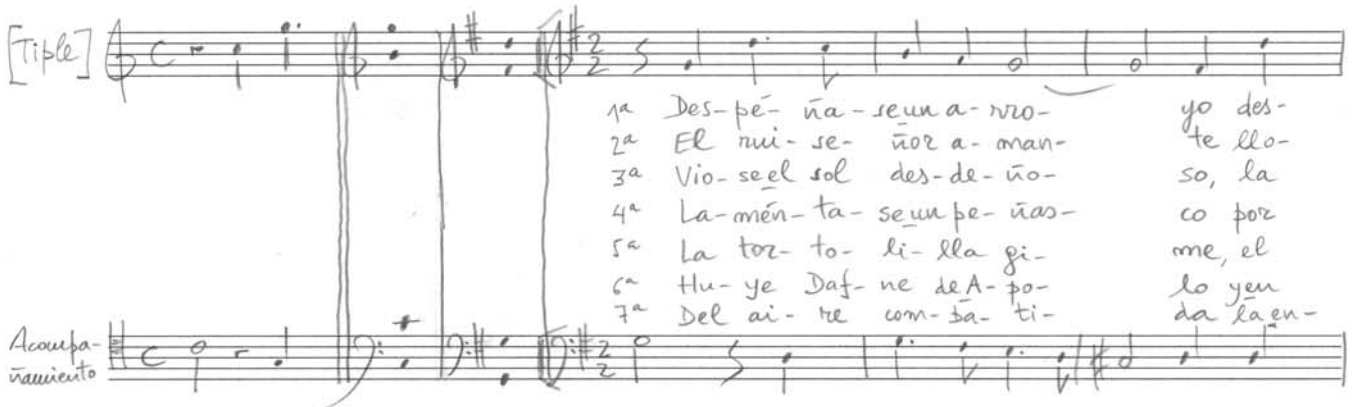 [Tiple]
1ª Des-pé-ña-se un a-rro-yo des-
2ª El rui-se-ñor a-man-te llo-
3ª Vio-se el sol des-de-ño-so, la
4ª La-mén-ta-se un pe-ñas-co por
5ª La tor-to-li-lla gi-me, el
6ª Hu-ye Daf-ne de A-po-lo y en
7ª Del ai-re com-ba-ti-da la en-
Acompa-
ñamiento